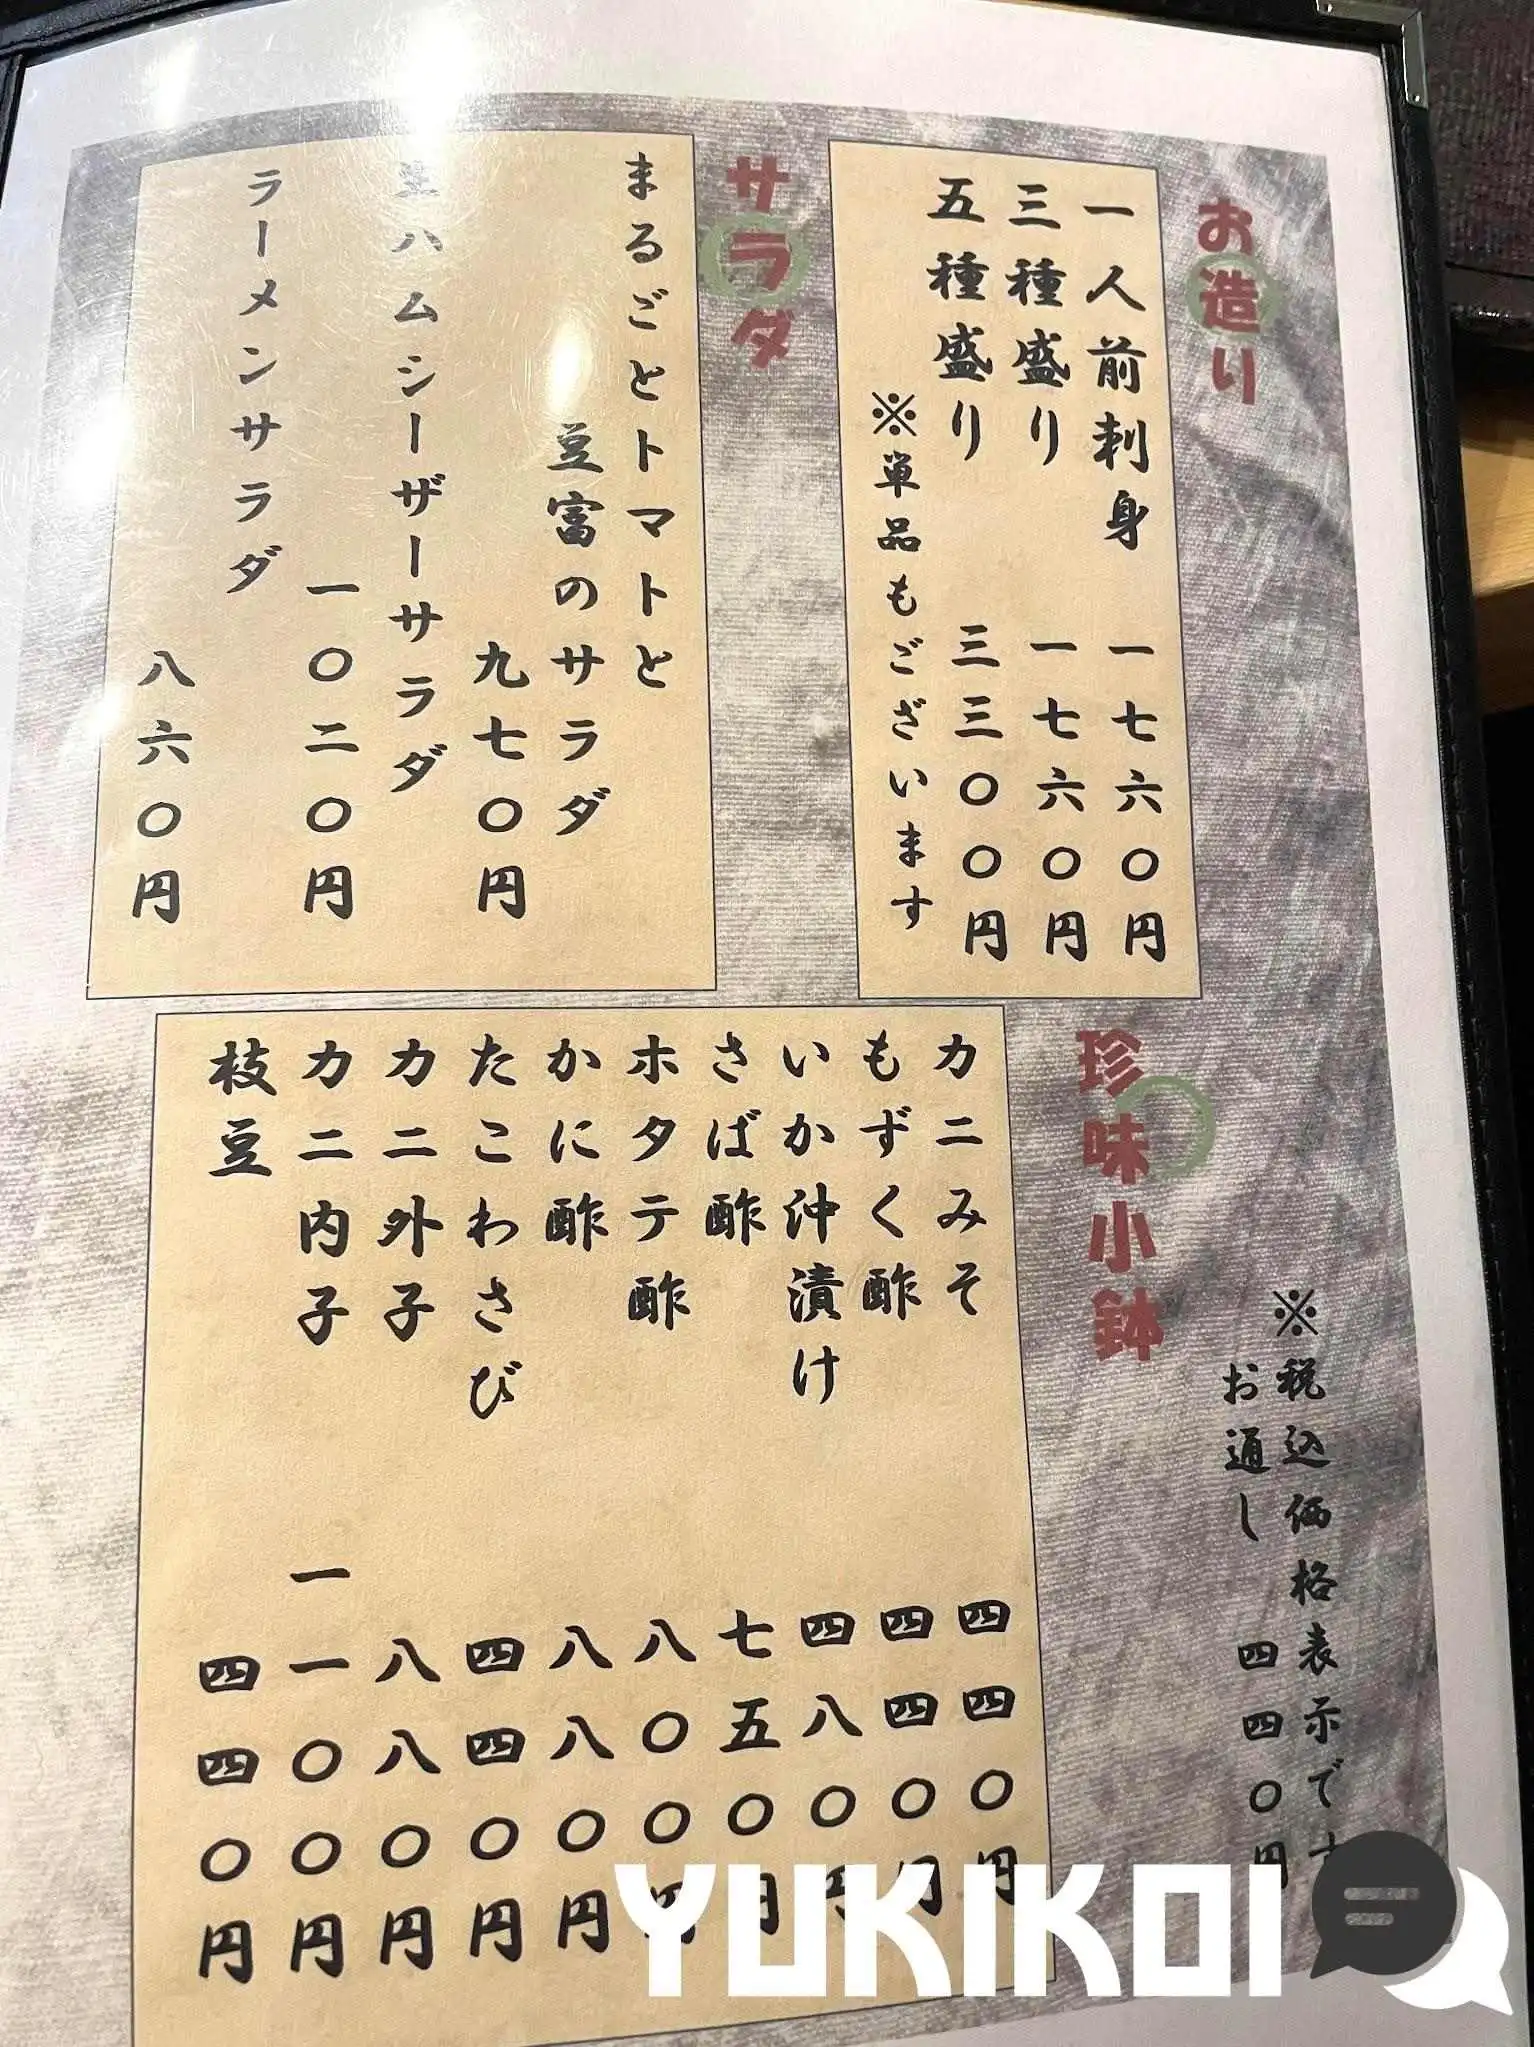 お造り
一人前刺身 一七六〇円
三種盛り 一七六〇円
五種盛り 三三〇〇円
※単品もございます
サラダ
まるごとトマトと
豆富のサラダ
九七〇円
生ハムシーザーサラダ
一〇二〇円
ラーメンサラダ
八六〇円
※税込価格表示です
お通し 四四〇円
珍味小鉢
カニみそ 四四〇円
もずく酢 四四〇円
いか沖漬け 四八〇円
さば酢 七五〇円
ホタテ酢 八〇〇円
かに酢 八八〇円
たこわさび 四四〇円
カニ外子 八八〇円
カニ内子 一一〇〇円
枝豆 四四〇円
YUKIKOI